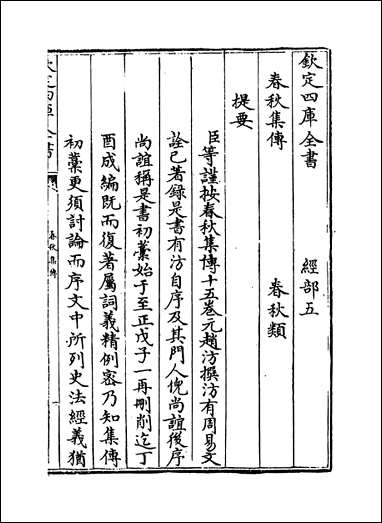 欽定四庫全書　　　經部五
春秋集傳　　　　　春秋類
提要
臣等謹按春秋集傳十五卷元趙汸撰汸有周易文
詮已著錄是書有汸自序及其門人倪尚誼後序
尚誼稱是書初藁始于至正戊子一再刪削迄丁
酉成編既而復著屬詞義精例宻乃知集傳
初藁更須討論而序文中所列史法經義猶
欽定四庫全書
春秋集傳
一